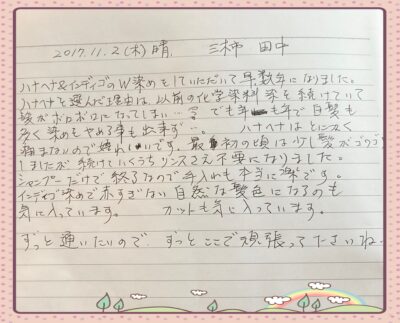 2017.11.2(木)晴. 三柿 田中
ハナヘナ&インディゴのW染めをしていただいて早数年になりました。
ハナヘナを選んだ理由は、以前の化学染料染を続けていて
髪がボロボロになってしまい… でも年も年で白髪も
多く染めもやめる事も出来ず…。 ハナヘナはとにかく
なので嬉しいです。最初の頃は少し髪がゴワゴワ
しましたが 続けていくうちリンスさえ不要になりました。
シャンプーだけで終るので手入れも本当に楽です。
インディゴ染めで赤すぎない自然な髪色になるのも
気に入っています。 カットも気に入っています。
ずっと通いたいので、ずっとここで頑張って下さいね。